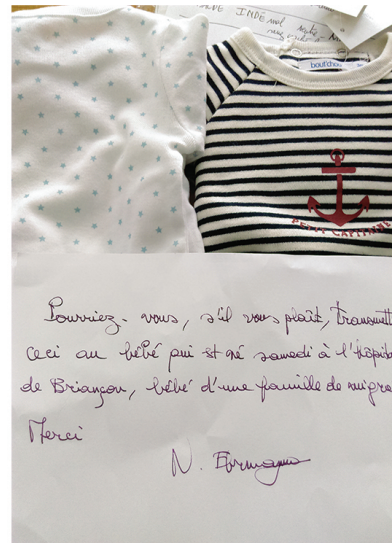 bout'chou
PETIT CAPITAINE
Pourriez-vous, s'il vous plaît, transmett
ceci au bébé qui est né samedi à l'hôpita
de Briançon, bébé d'une famille de migra
Merci
N.